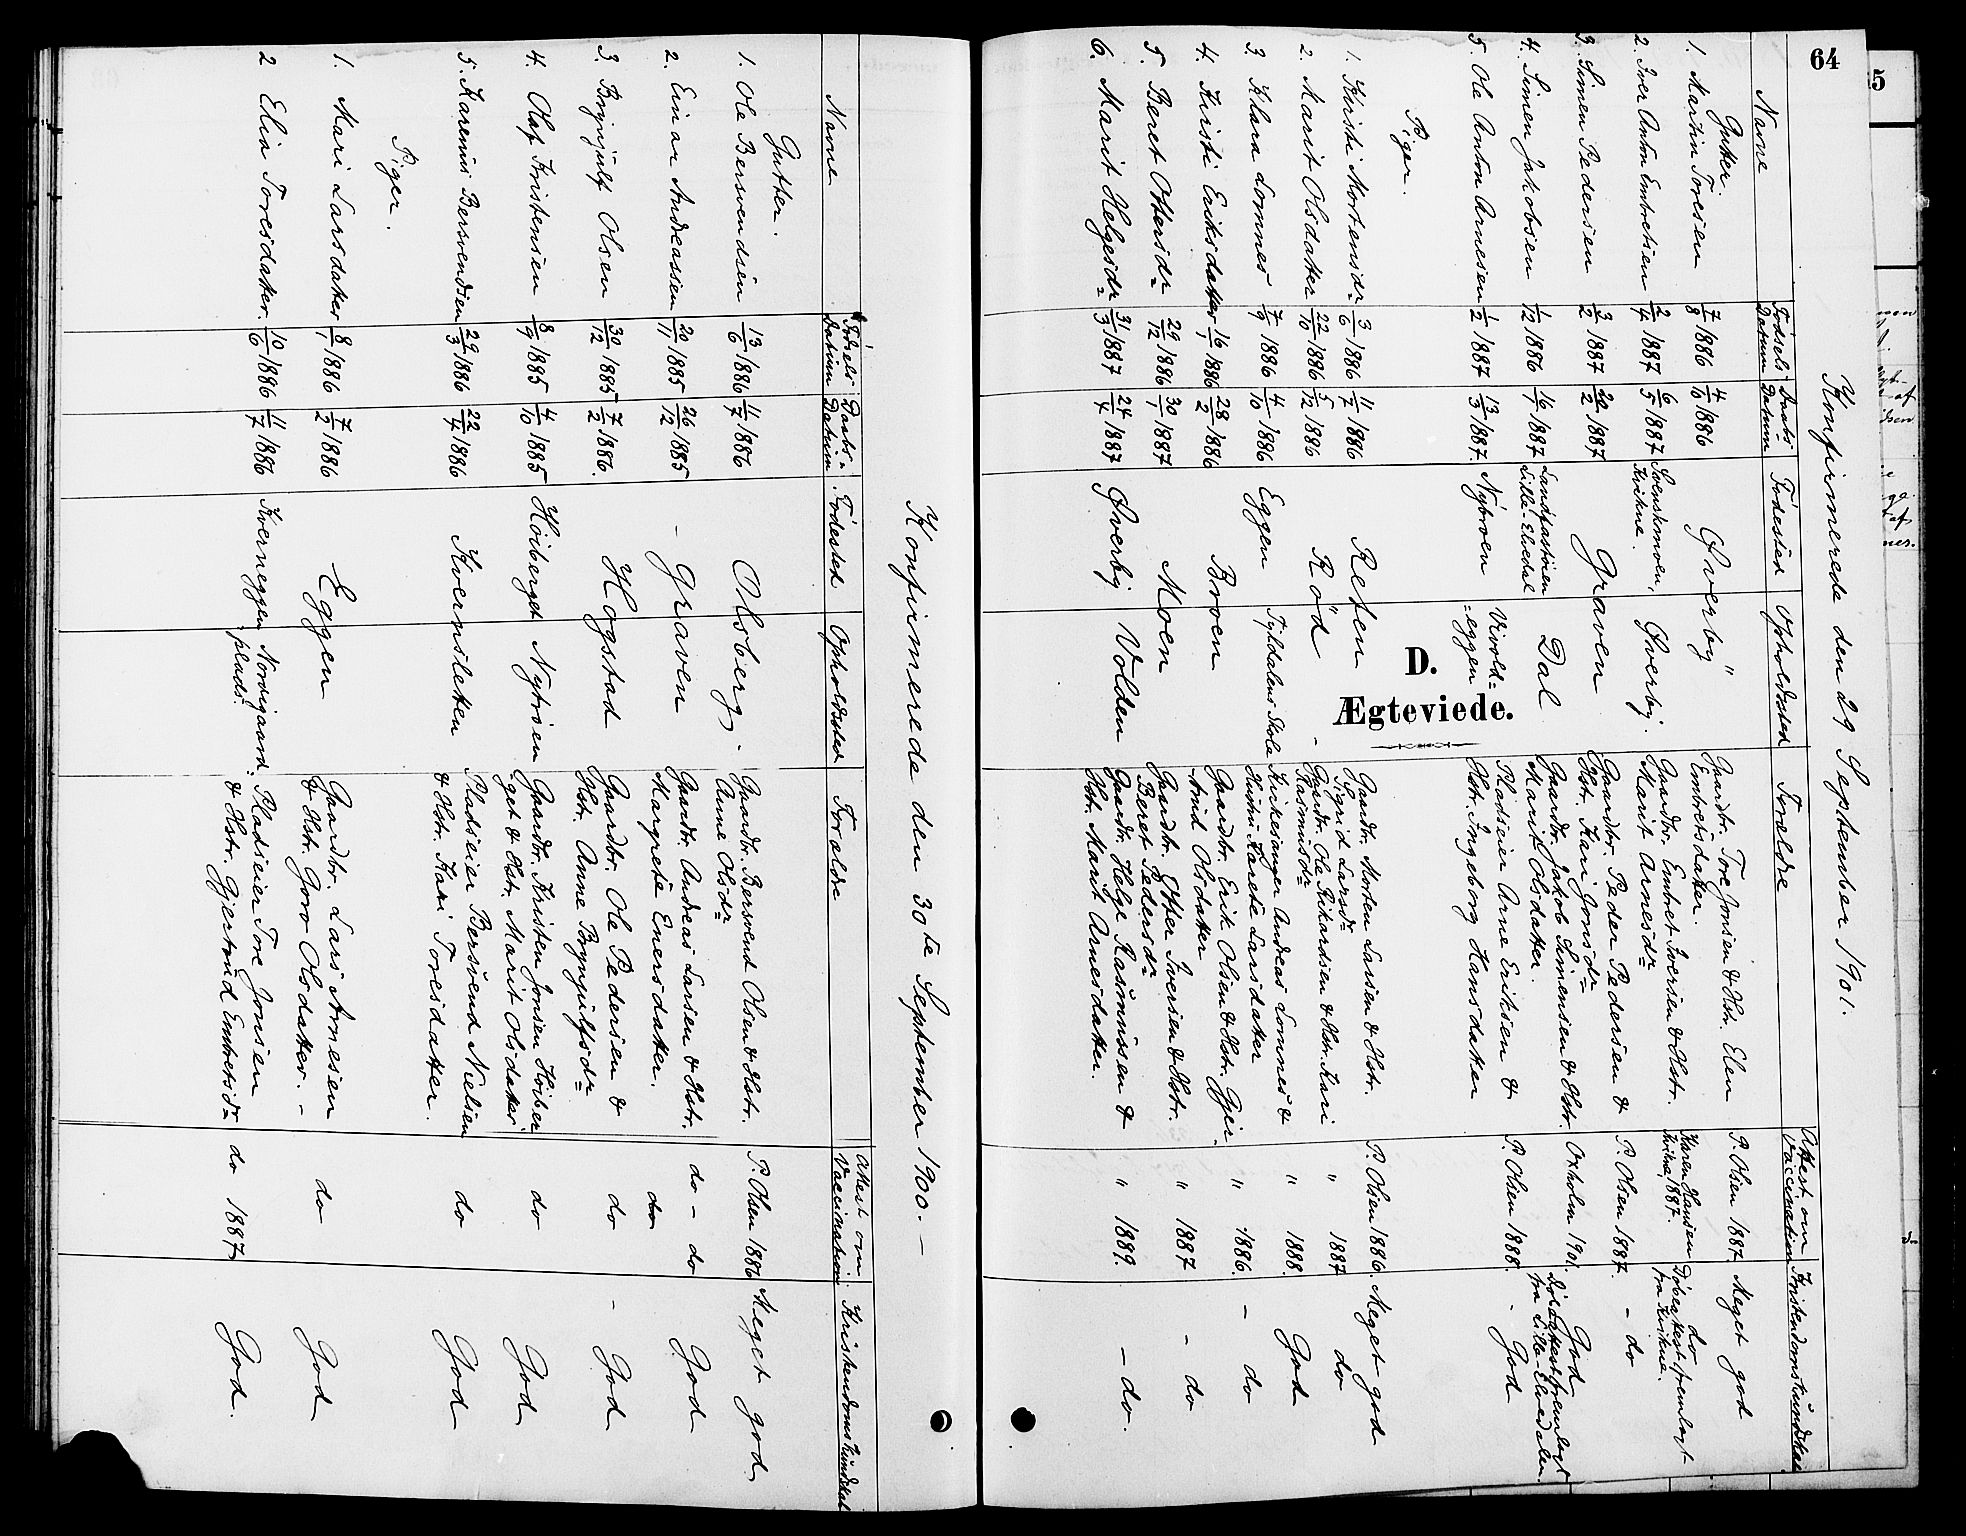 Konfirmerede den 30te September 1900. -
Navne
Fødsels Datum
Daabs- Datum
Fødested
Opholdssted
Forældre
Attest om Vaccination
Kristendomskundskab
Gutter.
1. Ole Bersvendsen 13/6 1886 11/7 1886 Olsberg. Gaardbr. Bersvend Olsen & Hstr. P. Olsen 1886 Meget god
Anne Olsdr
2. Einar Andreassen 20/11 1885 26/12 1885 - Graven Gaardbr. Andreas Larsen & Hstr. do - do God
Margrete Enersdatter. do
3. Brynjulf Olsen 30/12 1885 7/2 1886. Hogstad Gaardbr. Ole Pedersen & do - God
Hstr. Anne Brynjulfsdr
4. Olaf Kristensen 8/9 1885 4/10 1885 Høiberget Nytrøen Gaardbr. Kristen Jonsen Høiber- do God
get & Hstr. Marit Olsdatter
5. Karenius Bersvendsen 29/3 1886 22/4 1886 Kvernsletten Pladseier Bersvend Nielsen do God
& Hstr. Kari Toresdatter.
Piger.
1. Mari Larsdatter 8/1 1886 7/2 1886 Eggen Gaardbr. Lars Arnesen do God
& Hstr. Goro Olsdatter. -
2 Elia Toresdatter. 10/6 1886 11/7 1886 Kverneggen Nordigaards- Pladseier Tore Jonsen do 1887 God.
plads. & Hstr. Gjertrud Embretsdr
64
Konfirmerede den 29 September 1901.
Navne
Fødsels Datum
Daabs- Datum
Fødested
Opholdssted
Forældre
Attest om Vaccination
Kristendomskundskab
Gutter.
1. Martin Toresen 7/8 1886 4/10 1886 Øverby " Gaardbr. Tore Jonsen & Hstr. Elen P. Olsen 1887. Meget god
Embretsdatter.
2. Iver Anton Embretsen 2/4 1887 6/5 1887 Svenskmoen, Øverby. Gaardbr. Embret Iversen & Hstr. Karen Hansen do
Kvikne. Marit Arnesdr Kvikne, 1887. Døbeattest fremlagt fra Kvikne.
3. Simen Pedersen 3/2 1887 1887 Graven Gaardbr. Peder Pedersen & P. Olsen 1887. - do
Hstr. Kari Jonsdr
4. Simen Jakobsen 1/12 1886 16/1 1887 Lille-Elvedal Dal Gaardbr. Jakob Simensen & Hstr. Oxholm 1901. God
Marit Olsdatter. Døbeattest fremlagt fra Lille-Elvedalen.
5. Ole Anton Arnesen 1/2 1887 13/3 1887. Nybroen Pladseier Arne Eriksen & P. Olsen 1888. - God
-eggen Hstr. Ingeborg Hansdatter
Piger.
D.
Ægteviede.
1. Kirsti Mortensdr 3/6 1886 11/7 1886 Reten Gaardbr. Morten Larsen & Hstr. P. Olsen 1886. Meget god
Sigrid Larsdr
2. Marit Olsdatter 22/10 1886 5/12 1886 Röd - Gaardbr. Ole Rikardsen & Hstr. Kari " 1887 do
Rasmusdr
3 Klara Lomnes 7/9 1886 4/10 1886 Eggen Tyldalens Skole Kirkesanger Andreas Lomnes & " 1888. God
Hustru Karete Larsdatter
4. Kirsti Eriksdatter 16/1 1886 28/2 1886 Broen Gaardbr. Erik Olsen & Hstr. Gjer- " 1886. - do
trud Olsdatter
5. Beret Ottersdr 29/12 1886 30/1 1887 Moen Gaardbr. Otter Iversen & Hstr. " 1887 - do
Beret Pedersdr
6. Marit Helgesdr 31/3 1887 24/4 1887 Øverby Volden Gaardbr. Helge Rasmussen & " 1889. - do.
Hstr. Marit Arnesdatter.